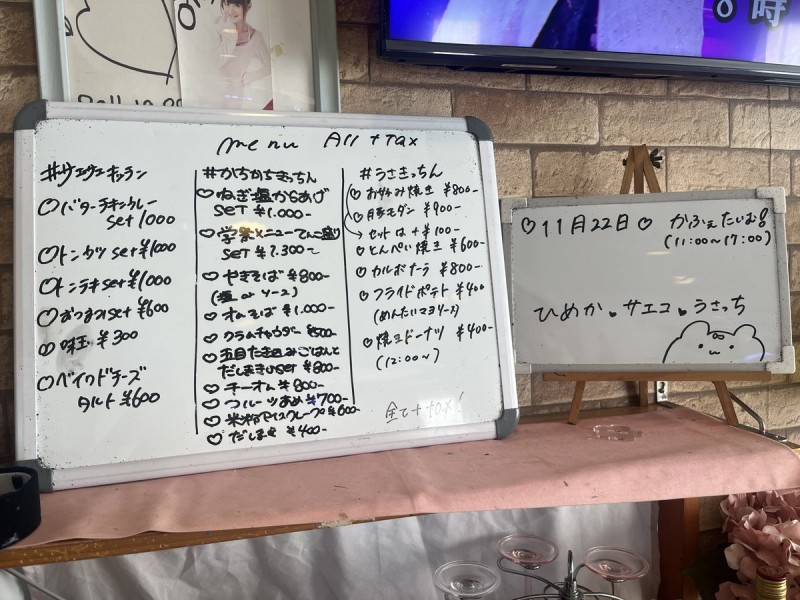 Menu All + Tax
#サエコキッチン
バターチキンカレー
set 1000
トンカツ set ¥1000
トンテキ set ¥1000
おつまみset ¥600
味玉 ¥300
ベイクドチーズ
タルト ¥600
#かちかちきっちん
ねぎ塩からあげ
SET ¥1.000-
学祭メニューてんこ盛り
SET ¥1.300-
やきそば ¥800-
(塩 or ソース)
オムそば ¥1.000-
クラムチャウダー ¥500-
五目たき込みごはんと
だしまきset ¥800-
チーオム ¥800-
フルーツあめ ¥700-
米粉アイスクレープ ¥600-
だしまき ¥400-
#うさきっちん
お好み焼き ¥800-
月見モダン ¥900-
セットは + ¥100-
とんぺい焼き ¥600-
カルボナーラ ¥800-
フライドポテト ¥400
(めんたいマヨソース)
焼きドーナツ ¥400-
(12:00~)
全て + tax!
11月22日 かふぇたいむ!
(11:00~17:00)
ひめか サエコ うさっち
8時